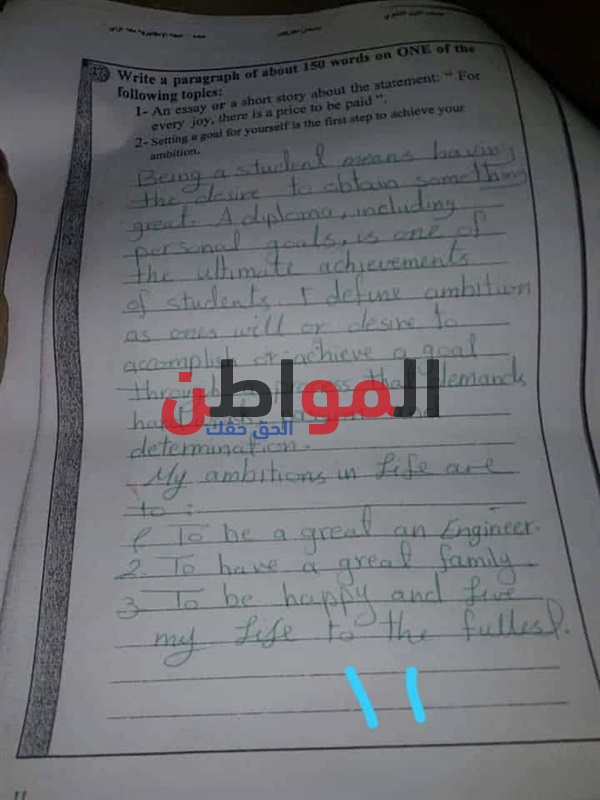 Write a paragraph of about 150 words on ONE of the
following topics:
1- An essay or a short story about the statement: " For
every joy, there is a price to be paid ".
2- Setting a goal for yourself is the first step to achieve your
ambition.
Being a student means having
the desire to obtain something
great. A diploma, including
personal goals, is one of
the ultimate achievements
of students. I define ambition
as ones will or desire to
accomplish or achieve a goal
through a process that demands
المواطن
الحق حقك
determination.
My ambitions in life are
to :
1 To be a great an Engineer.
2. To have a great family
3 To be happy and live
my life to the fullest.
١١
11